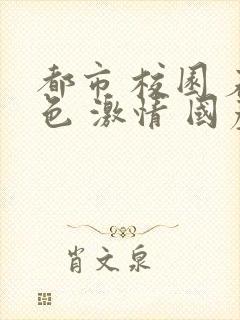 都市 校园 
色 激情 国
肖文泉